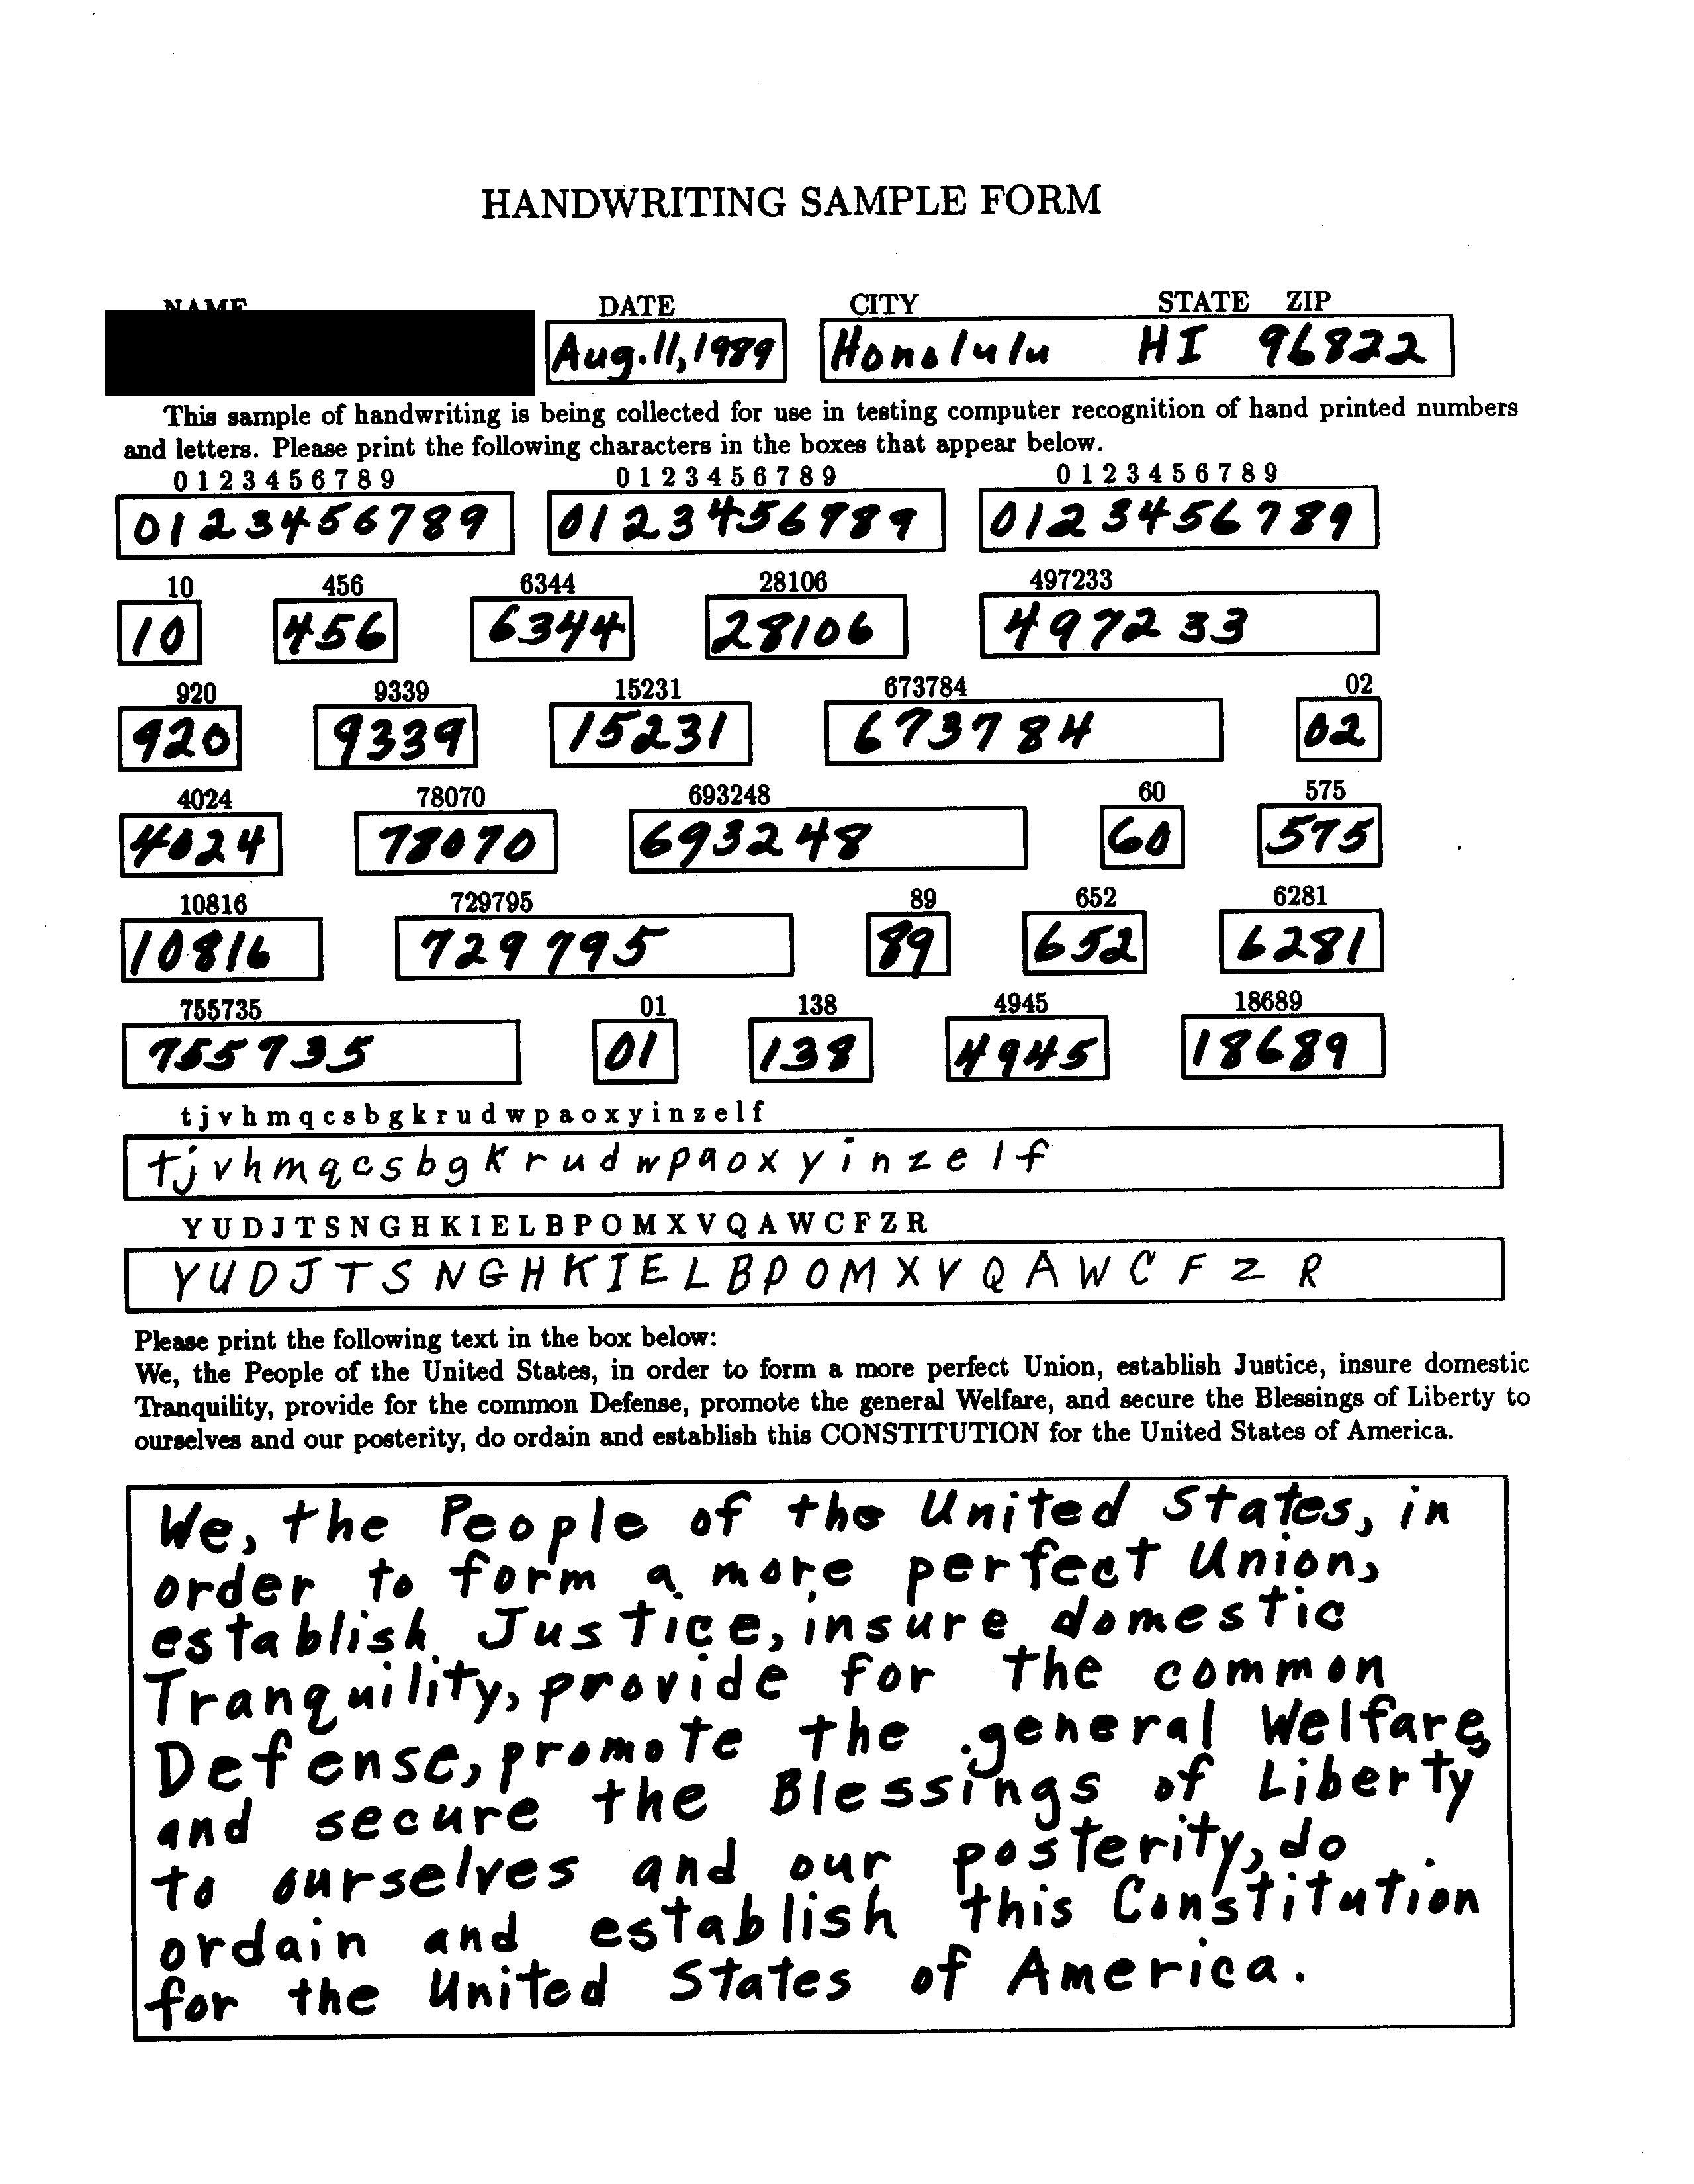 HANDWRITING SAMPLE FORM
NAME DATE CITY STATE ZIP
Aug.11,1989 Honolulu HI 96822
This sample of handwriting is being collected for use in testing computer recognition of hand printed numbers
and letters. Please print the following characters in the boxes that appear below.
0 1 2 3 4 5 6 7 8 9 0 1 2 3 4 5 6 7 8 9 0 1 2 3 4 5 6 7 8 9
0123456789 0123456789 0123456789
10 456 6344 28106 497233
10 456 6344 28106 497233
920 9339 15231 673784 02
920 9339 15231 673784 02
4024 78070 693248 60 575
4024 78070 693248 60 575
10816 729795 89 652 6281
10816 729795 89 652 6281
755735 01 138 4945 18689
755735 01 138 4945 18689
t j v h m q c s b g k r u d w p a o x y i n z e l f
t j v h m q c s b g k r u d w p a o x y i n z e l f
Y U D J T S N G H K I E L B P O M X V Q A W C F Z R
Y U D J T S N G H K I E L B P O M X V Q A W C F Z R
Please print the following text in the box below:
We, the People of the United States, in order to form a more perfect Union, establish Justice, insure domestic
Tranquility, provide for the common Defense, promote the general Welfare, and secure the Blessings of Liberty to
ourselves and our posterity, do ordain and establish this CONSTITUTION for the United States of America.
We, the People of the United States, in
order to form a more perfect Union,
establish Justice, insure domestic
Tranquility, provide for the common
Defense, promote the general Welfare,
and secure the Blessings of Liberty
to ourselves and our posterity, do
ordain and establish this Constitution
for the United States of America.